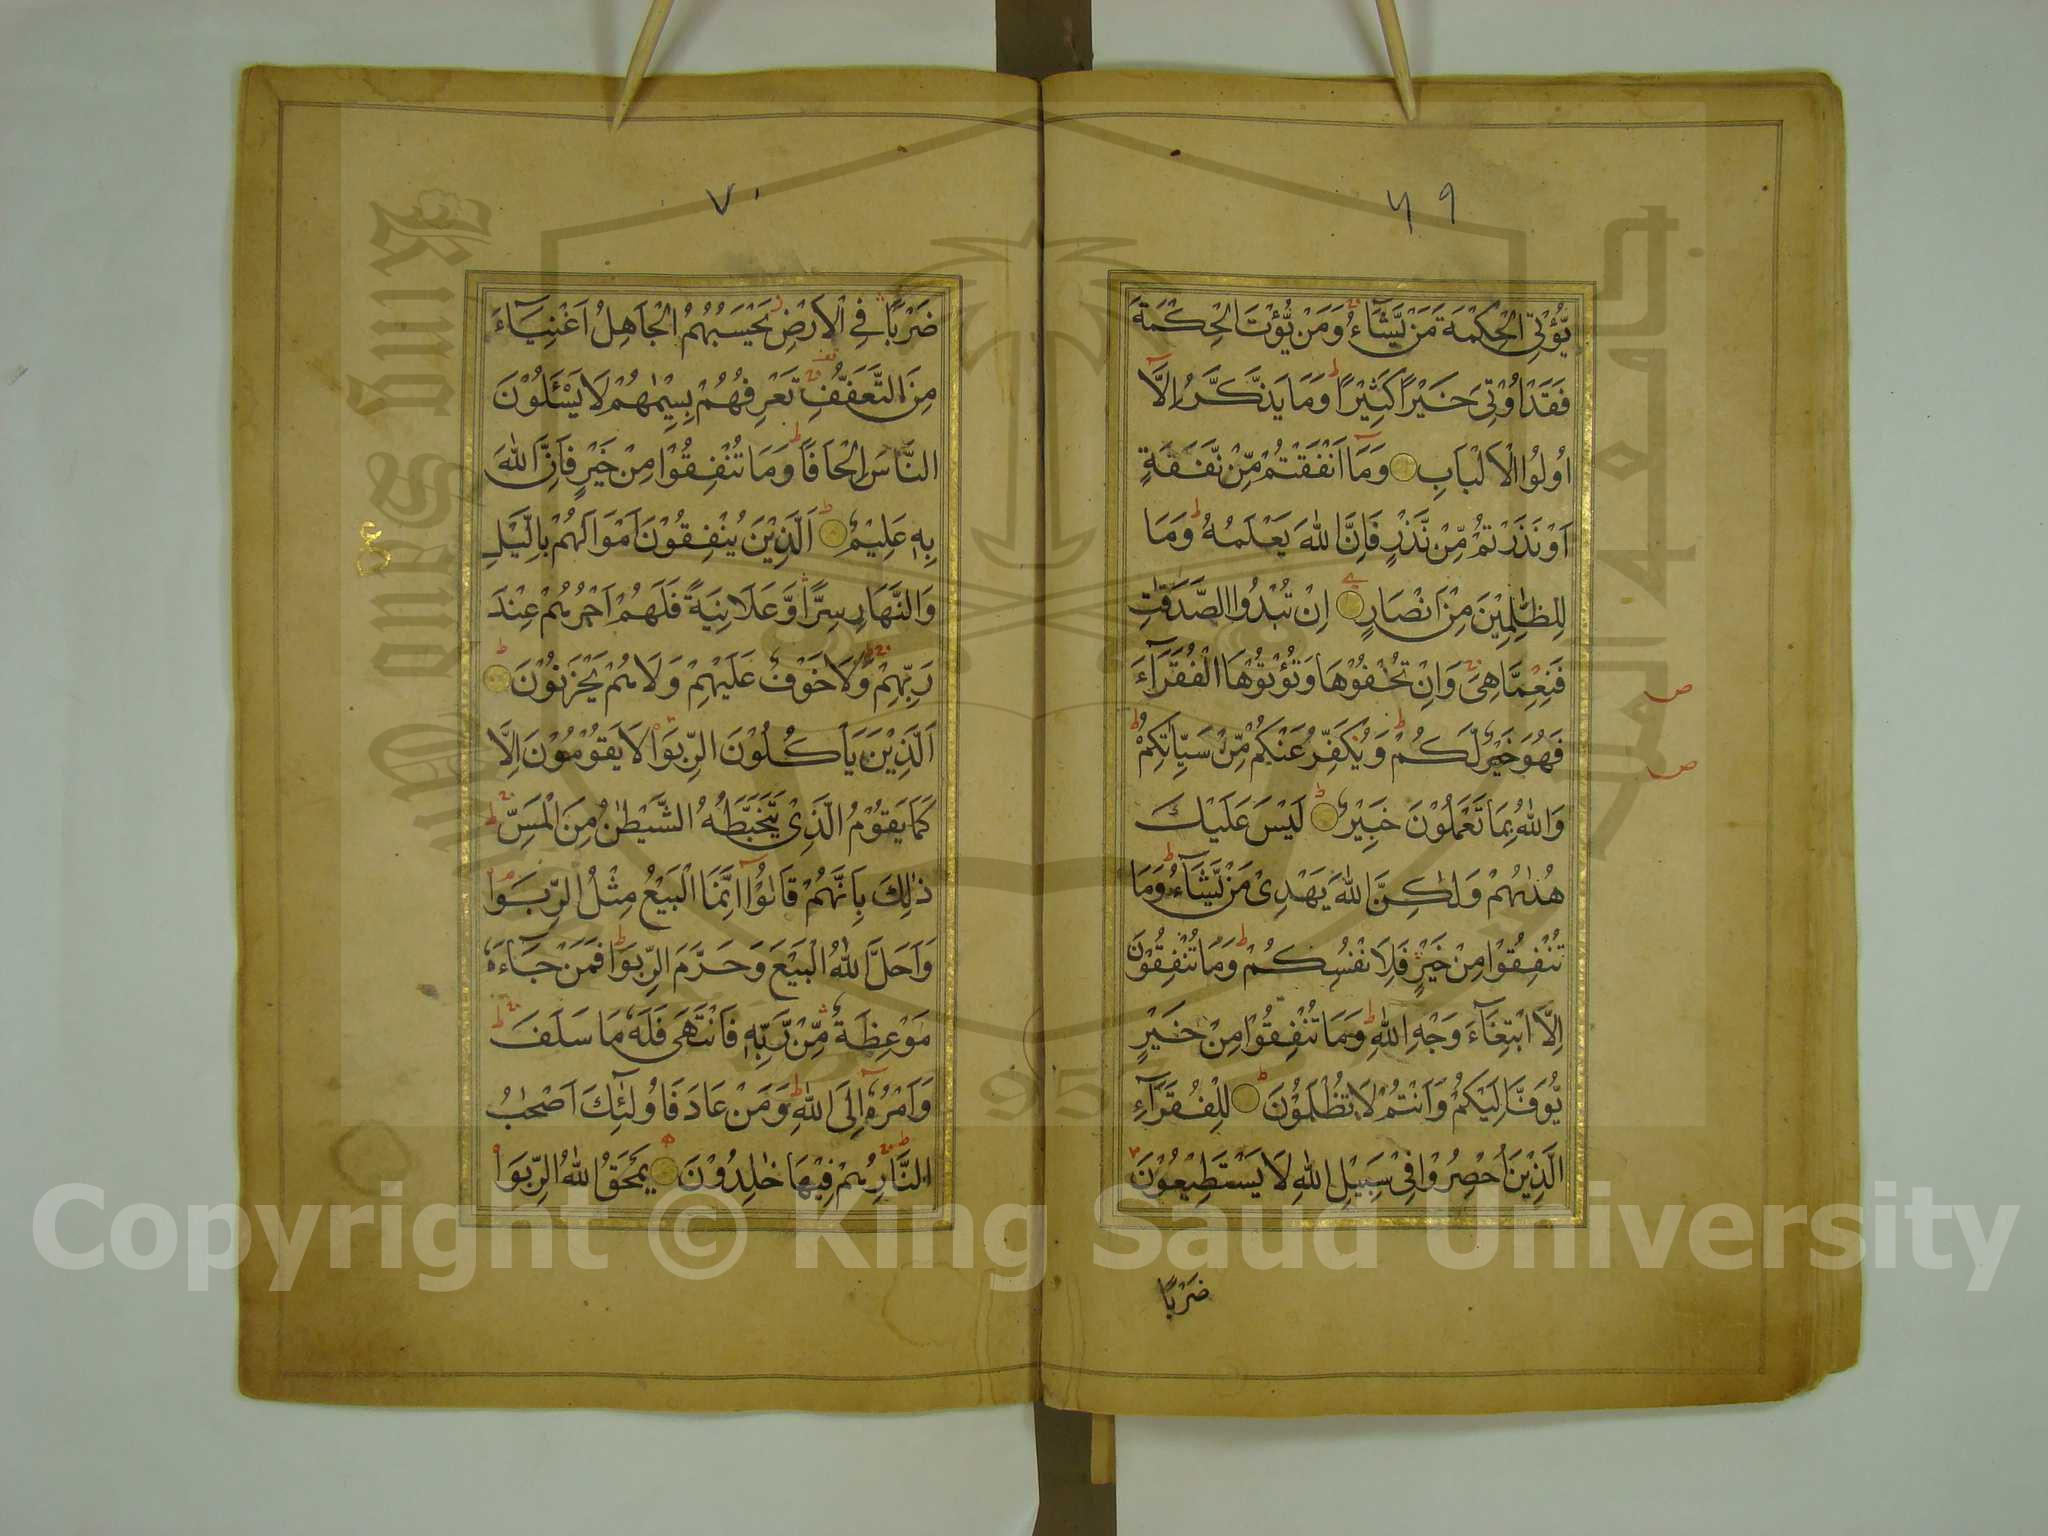 ٦٩
يُّؤْتِى الْحِكْمَةَ مَنْ يَّشَآءُ وَمَنْ يُّؤْتَ الْحِكْمَةَ
فَقَدْ اُوْتِىَ خَيْرًا كَثِيْرًا وَمَا يَذَّكَّرُ اِلَّآ
اُولُوا الْاَلْبَابِ وَمَآ اَنْفَقْتُمْ مِّنْ نَّفَقَةٍ
اَوْ نَذَرْتُمْ مِّنْ نَّذْرٍ فَاِنَّ اللّٰهَ يَعْلَمُهُ وَمَا
لِلظّٰلِمِيْنَ مِنْ اَنْصَارٍ اِنْ تُبْدُوا الصَّدَقٰتِ
فَنِعِمَّا هِىَ وَاِنْ تُخْفُوْهَا وَتُؤْتُوْهَا الْفُقَرَآءَ
فَهُوَ خَيْرٌ لَّكُمْ وَيُكَفِّرُ عَنْكُمْ مِّنْ سَيِّاٰتِكُمْ
وَاللّٰهُ بِمَا تَعْمَلُوْنَ خَبِيْرٌ لَيْسَ عَلَيْكَ
هُدٰىهُمْ وَلٰكِنَّ اللّٰهَ يَهْدِىْ مَنْ يَّشَآءُ وَمَا
تُنْفِقُوْا مِنْ خَيْرٍ فَلِاَنْفُسِكُمْ وَمَا تُنْفِقُوْنَ
اِلَّا ابْتِغَآءَ وَجْهِ اللّٰهِ وَمَا تُنْفِقُوْا مِنْ خَيْرٍ
يُّوَفَّ اِلَيْكُمْ وَاَنْتُمْ لَا تُظْلَمُوْنَ لِلْفُقَرَآءِ
الَّذِيْنَ اُحْصِرُوْا فِىْ سَبِيْلِ اللّٰهِ لَا يَسْتَطِيْعُوْنَ
ضَرْبًا
ص
ص
٧٠
ضَرْبًا فِى الْاَرْضِ يَحْسَبُهُمُ الْجَاهِلُ اَغْنِيَآءَ
مِنَ التَّعَفُّفِ تَعْرِفُهُمْ بِسِيْمٰهُمْ لَا يَسْـَٔلُوْنَ
النَّاسَ اِلْحَافًا وَمَا تُنْفِقُوْا مِنْ خَيْرٍ فَاِنَّ اللّٰهَ
بِهٖ عَلِيْمٌ اَلَّذِيْنَ يُنْفِقُوْنَ اَمْوَالَهُمْ بِالَّيْلِ
وَالنَّهَارِ سِرًّا وَّعَلَانِيَةً فَلَهُمْ اَجْرُهُمْ عِنْدَ
رَبِّهِمْ وَلَا خَوْفٌ عَلَيْهِمْ وَلَا هُمْ يَحْزَنُوْنَ
اَلَّذِيْنَ يَاْكُلُوْنَ الرِّبٰوا لَا يَقُوْمُوْنَ اِلَّا
كَمَا يَقُوْمُ الَّذِىْ يَتَخَبَّطُهُ الشَّيْطٰنُ مِنَ الْمَسِّ
ذٰلِكَ بِاَنَّهُمْ قَالُوْٓا اِنَّمَا الْبَيْعُ مِثْلُ الرِّبٰوا
وَاَحَلَّ اللّٰهُ الْبَيْعَ وَحَرَّمَ الرِّبٰوا فَمَنْ جَآءَهٗ
مَوْعِظَةٌ مِّنْ رَّبِّهٖ فَانْتَهٰى فَلَهٗ مَا سَلَفَ
وَاَمْرُهٗٓ اِلَى اللّٰهِ وَمَنْ عَادَ فَاُولٰٓئِكَ اَصْحٰبُ
النَّارِ هُمْ فِيْهَا خٰلِدُوْنَ يَمْحَقُ اللّٰهُ الرِّبٰوا
Copyright © King Saud University